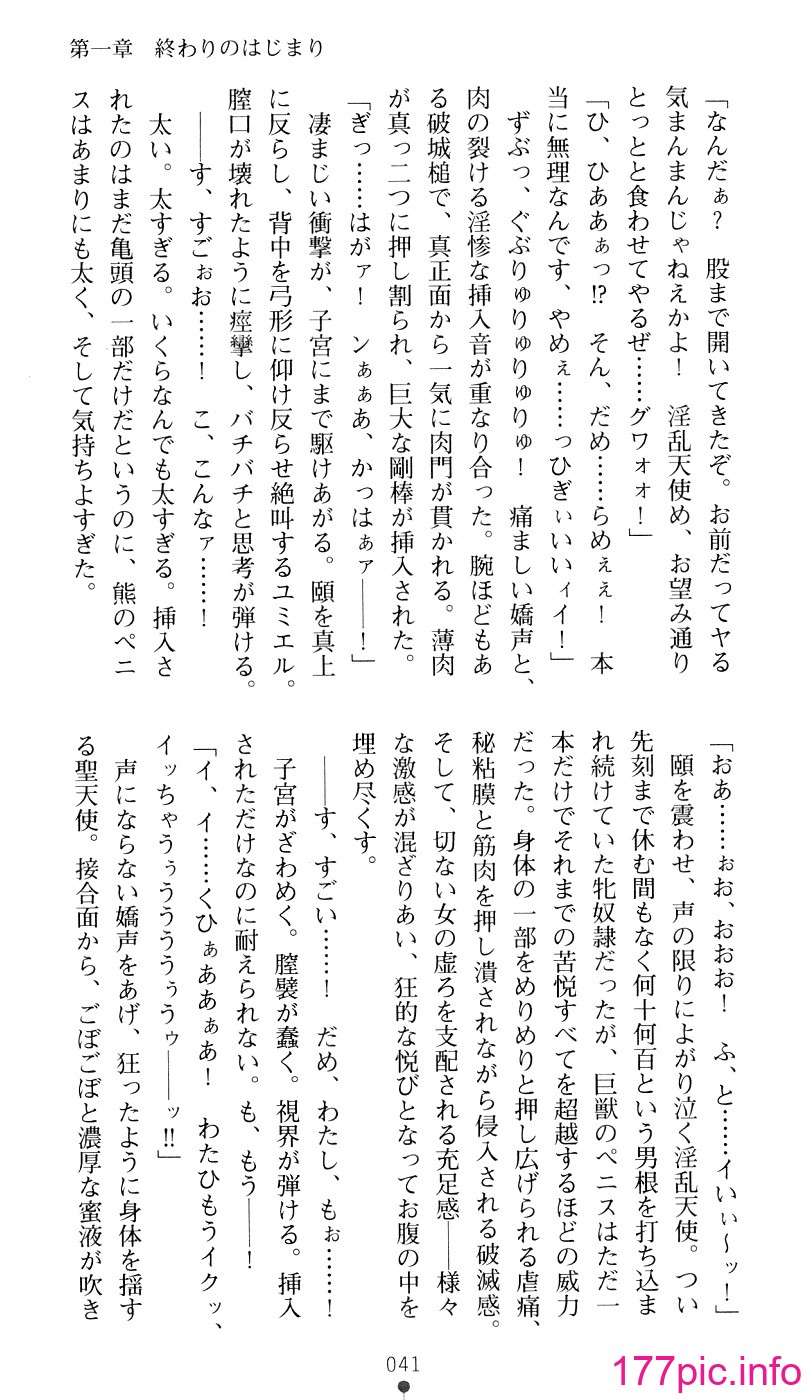 第一章　終わりのはじまり
「なんだぁ？　股まで開いてきたぞ。お前だってヤる
気まんまんじゃねえかよ！　淫乱天使め、お望み通り
とっとと食わせてやるぜ……グワォォ！」
「ひ、ひああぁっ!?　そん、だめ……らめぇぇ！　本
当に無理なんです、やめぇ……っひぎぃいいィイ！」
　ずぶっ、ぐぶりゅりゅりゅりゅ！　痛ましい嬌声と、
肉の裂ける淫惨な挿入音が重なり合った。腕ほどもあ
る破城槌で、真正面から一気に肉門が貫かれる。薄肉
が真っ二つに押し割られ、巨大な剛棒が挿入された。
「ぎっ……はがァ！　ンぁぁあ、かっはぁァ――！」
　凄まじい衝撃が、子宮にまで駆けあがる。頤を真上
に反らし、背中を弓形に仰け反らせ絶叫するユミエル。
膣口が壊れたように痙攣し、バチバチと思考が弾ける。
　――す、すごぉお……！　こ、こんなァ……！
　太い。太すぎる。いくらなんでも太すぎる。挿入さ
れたのはまだ亀頭の一部だけだというのに、熊のペニ
スはあまりにも太く、そして気持ちよすぎた。
「おあ……ぉお、おおお！　ふ、と……イいぃ～ッ！」
　頤を震わせ、声の限りによがり泣く淫乱天使。つい
先刻まで休む間もなく何十何百という男根を打ち込ま
れ続けていた牝奴隷だったが、巨獣のペニスはただ一
本だけでそれまでの苦悦すべてを超越するほどの威力
だった。身体の一部をめりめりと押し広げられる虐痛、
秘粘膜と筋肉を押し潰されながら侵入される破滅感。
そして、切ない女の虚ろを支配される充足感――様々
な激感が混ざりあい、狂的な悦びとなってお腹の中を
埋め尽くす。
　――す、すごい……！　だめ、わたし、もぉ……！
　子宮がざわめく。膣襞が蠢く。視界が弾ける。挿入
されただけなのに耐えられない。も、もう――！
「イ、イ……くひぁああぁあ！　わたひもうイクッ、
イッちゃうぅうううぅうゥ――ッ!!」
　声にならない嬌声をあげ、狂ったように身体を揺す
る聖天使。接合面から、ごぼごぼと濃厚な蜜液が吹き
041
177pic.info